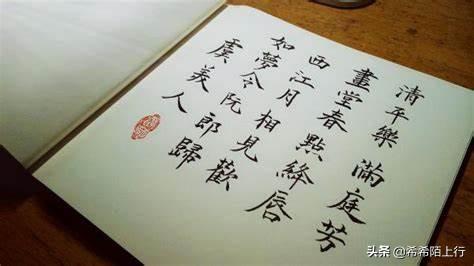 清平樂 滿庭芳
畫堂春 點絳唇
西江月 相見歡
如夢令 阮郎歸
虞美人
头条 @希希陌上行